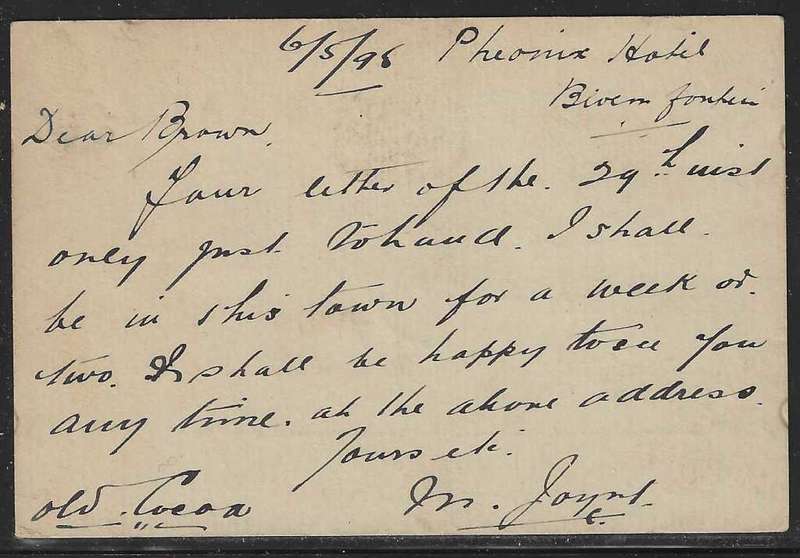 6/5/98 Pheonix Hotel
Bloemfontein
Dear Brown,
Your letter of the. 29th inst
only just to hand. I shall.
be in this town for a week or.
two. I shall be happy to see you
any time. at the above address.
Yours etc.
old. Cocoa M. Joynt